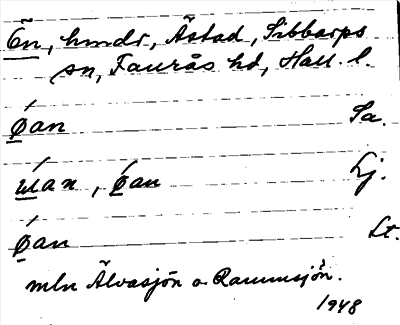 Ẽn, hmdr, Åstad, Sibbarps
sn, Faurås hd, Hall. l.
Øan Sa.
an, Øan Lj.
Øan Lt.
mln Älvasjön o. Rammsjön.
1948